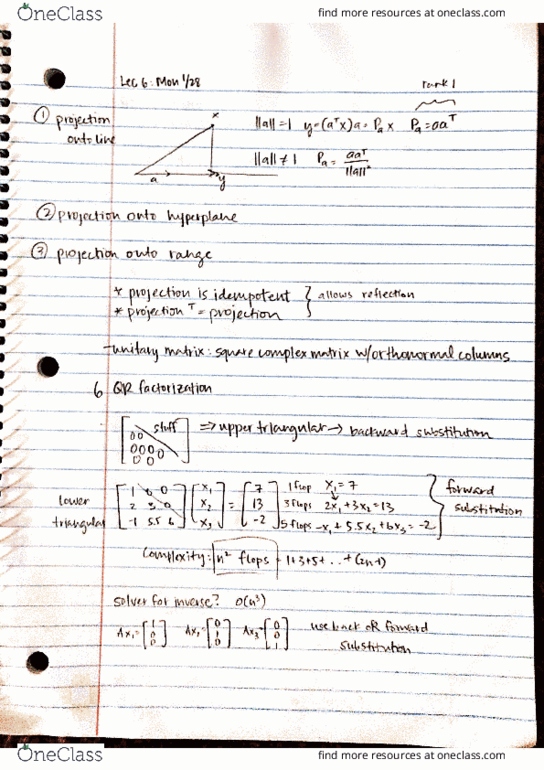 OneClass find more resources at oneclass.com
Lec 6: Mon 1/28 rank 1
① projection onto line x ||a||=1 y=(aᵀx)a = Pₐx Pₐ=aaᵀ
||a||≠1 Pₐ = aaᵀ/||a||²
a y
② projection onto hyperplane
③ projection onto range
* projection is idempotent } allows reflection
* projection ᵀ = projection
-unitary matrix: square complex matrix w/orthonormal columns
6 QR factorization
[stuff 00 0000 00] => upper triangular → backward substitution
lower triangular [1 0 0; 2 3 0; -1 5.5 6] [x₁; x₂; x₃] = [7; 13; -2] } forward substitution
1 flop x₁ = 7
3 flops 2x₁ + 3x₂ = 13
5 flops -x₁ + 5.5x₂ + 6x₃ = -2
Complexity: n² flops 1+3+5+ ... + (2n-1)
solver for inverse? O(n³)
Ax₁=[1 0 0] Ax₂=[0 1 0] Ax₃=[0 0 1] use back or forward substitution
OneClass find more resources at oneclass.com